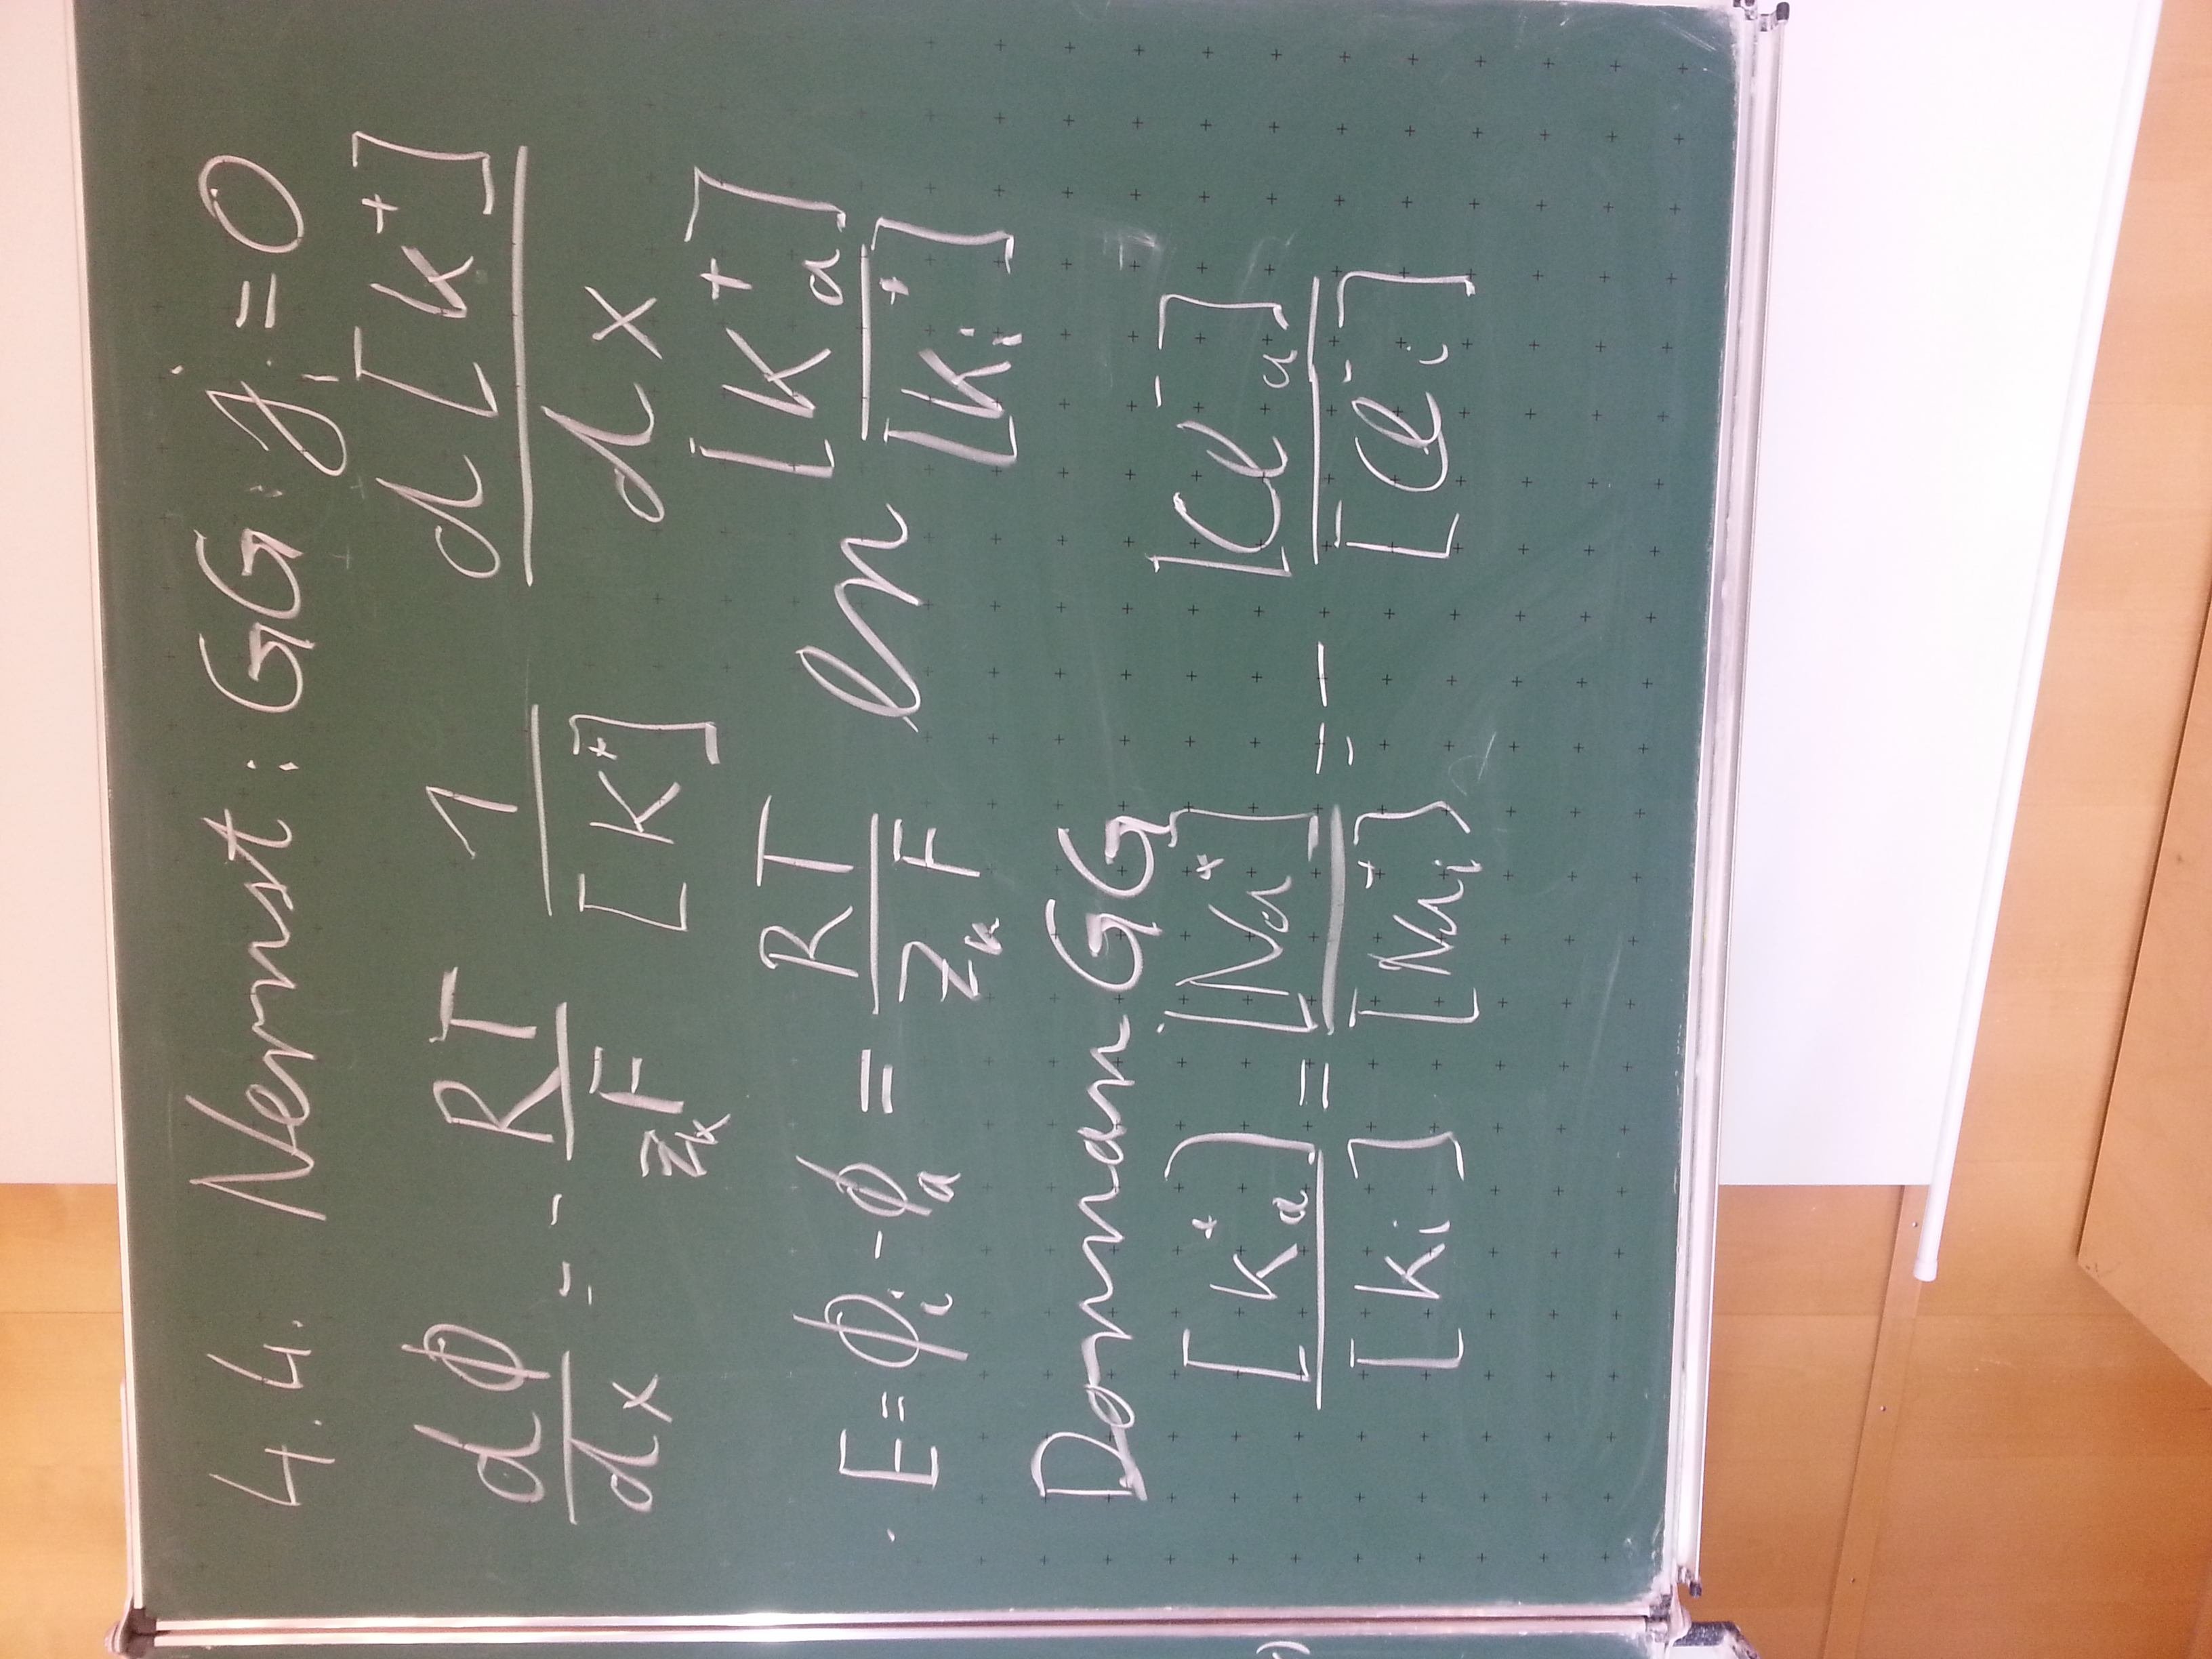 4.4. Nernst: GG: j_i = 0
dϕ/dx = - RT/(z_k F) 1/[K⁺] d[K⁺]/dx
E = ϕ_i - ϕ_a = RT/(z_k F) ln [K⁺_a]/[K⁺_i]
Donnan GG
[K⁺_a]/[K_i] = [Na⁺]/[Na⁺_i] = - [Cl⁻_a]/[Cl⁻_i]